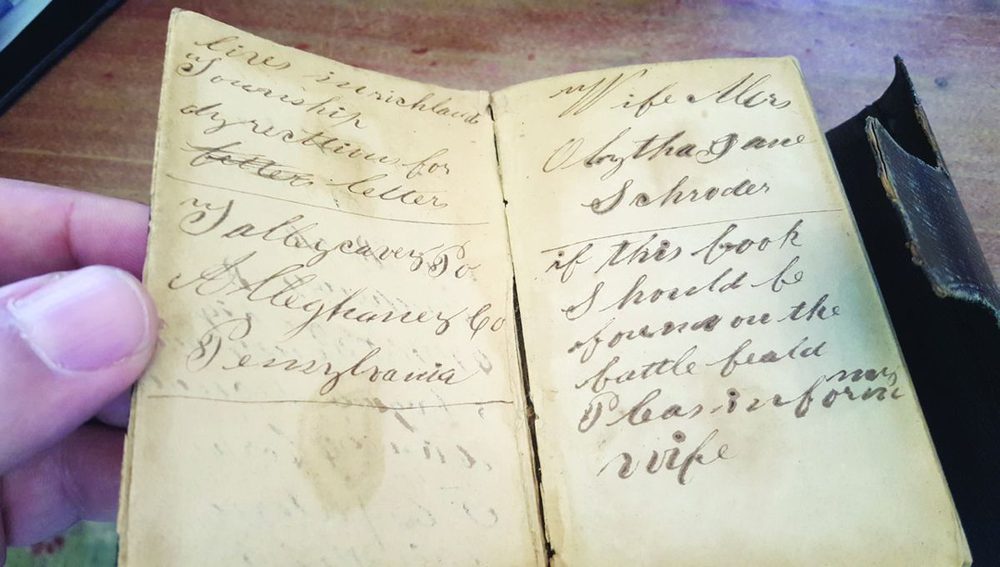 lives in richland
Township
dyrecttion for
better letters
Talleycavey Po
Alleghaney Co
Pensylvania
Wife Mrs
Obytha Jane
Schroder
if this book
Should be
found on the
battle feald
my
Pleas inform
wife